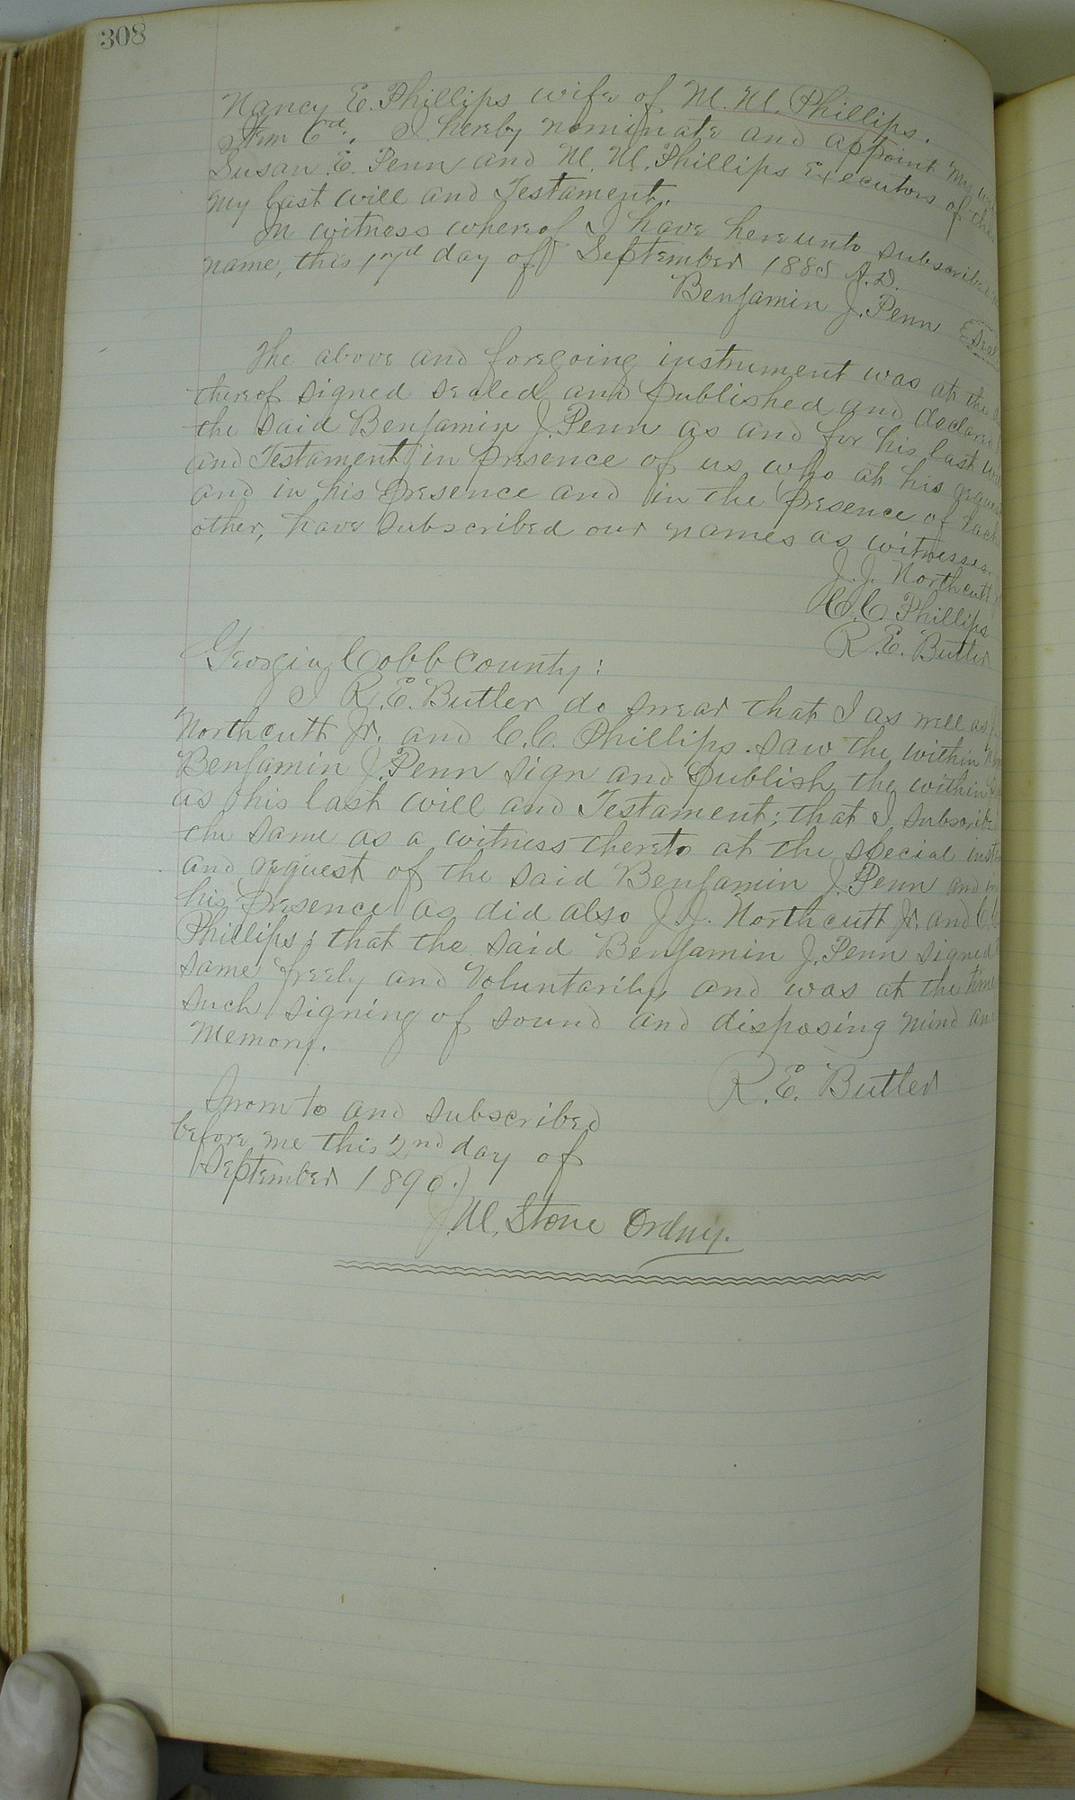 308
Nancy E. Phillips wife of M. M. Phillips.
Item 6d. I hereby nominate and appoint my
Susan E. Penn and M. M. Phillips Executors of this
my last will and Testament.
In witness whereof I have hereunto subscribed
name, this day of September 1885 A.D.
Benjamin J. Penn Seal
The above and foregoing instrument was at the
thereof signed sealed and published and declared
the said Benjamin J. Penn as and for his last will
and Testament in presence of us who at his request
and in his presence and in the presence of each
other, have subscribed our names as witnesses.
J. J. Northcutt
C. C. Phillips
R. E. Butler
Georgia, Cobb County:
I R. E. Butler do swear that I as well as J.
Northcutt Jr. and C. C. Phillips saw the within
Benjamin J. Penn sign and publish the within
as his last will and Testament; that I subscribed
the same as a witness thereto at the special
and request of the said Benjamin J. Penn and in
his presence as did also J. J. Northcutt Jr. and C. C.
Phillips; that the said Benjamin J. Penn signed
same freely and voluntarily, and was at the time
such signing of sound and disposing mind and
memory.
R. E. Butler
Sworn to and subscribed
before me this 2nd day of
September 1890.
J. M. Stone Ordny.